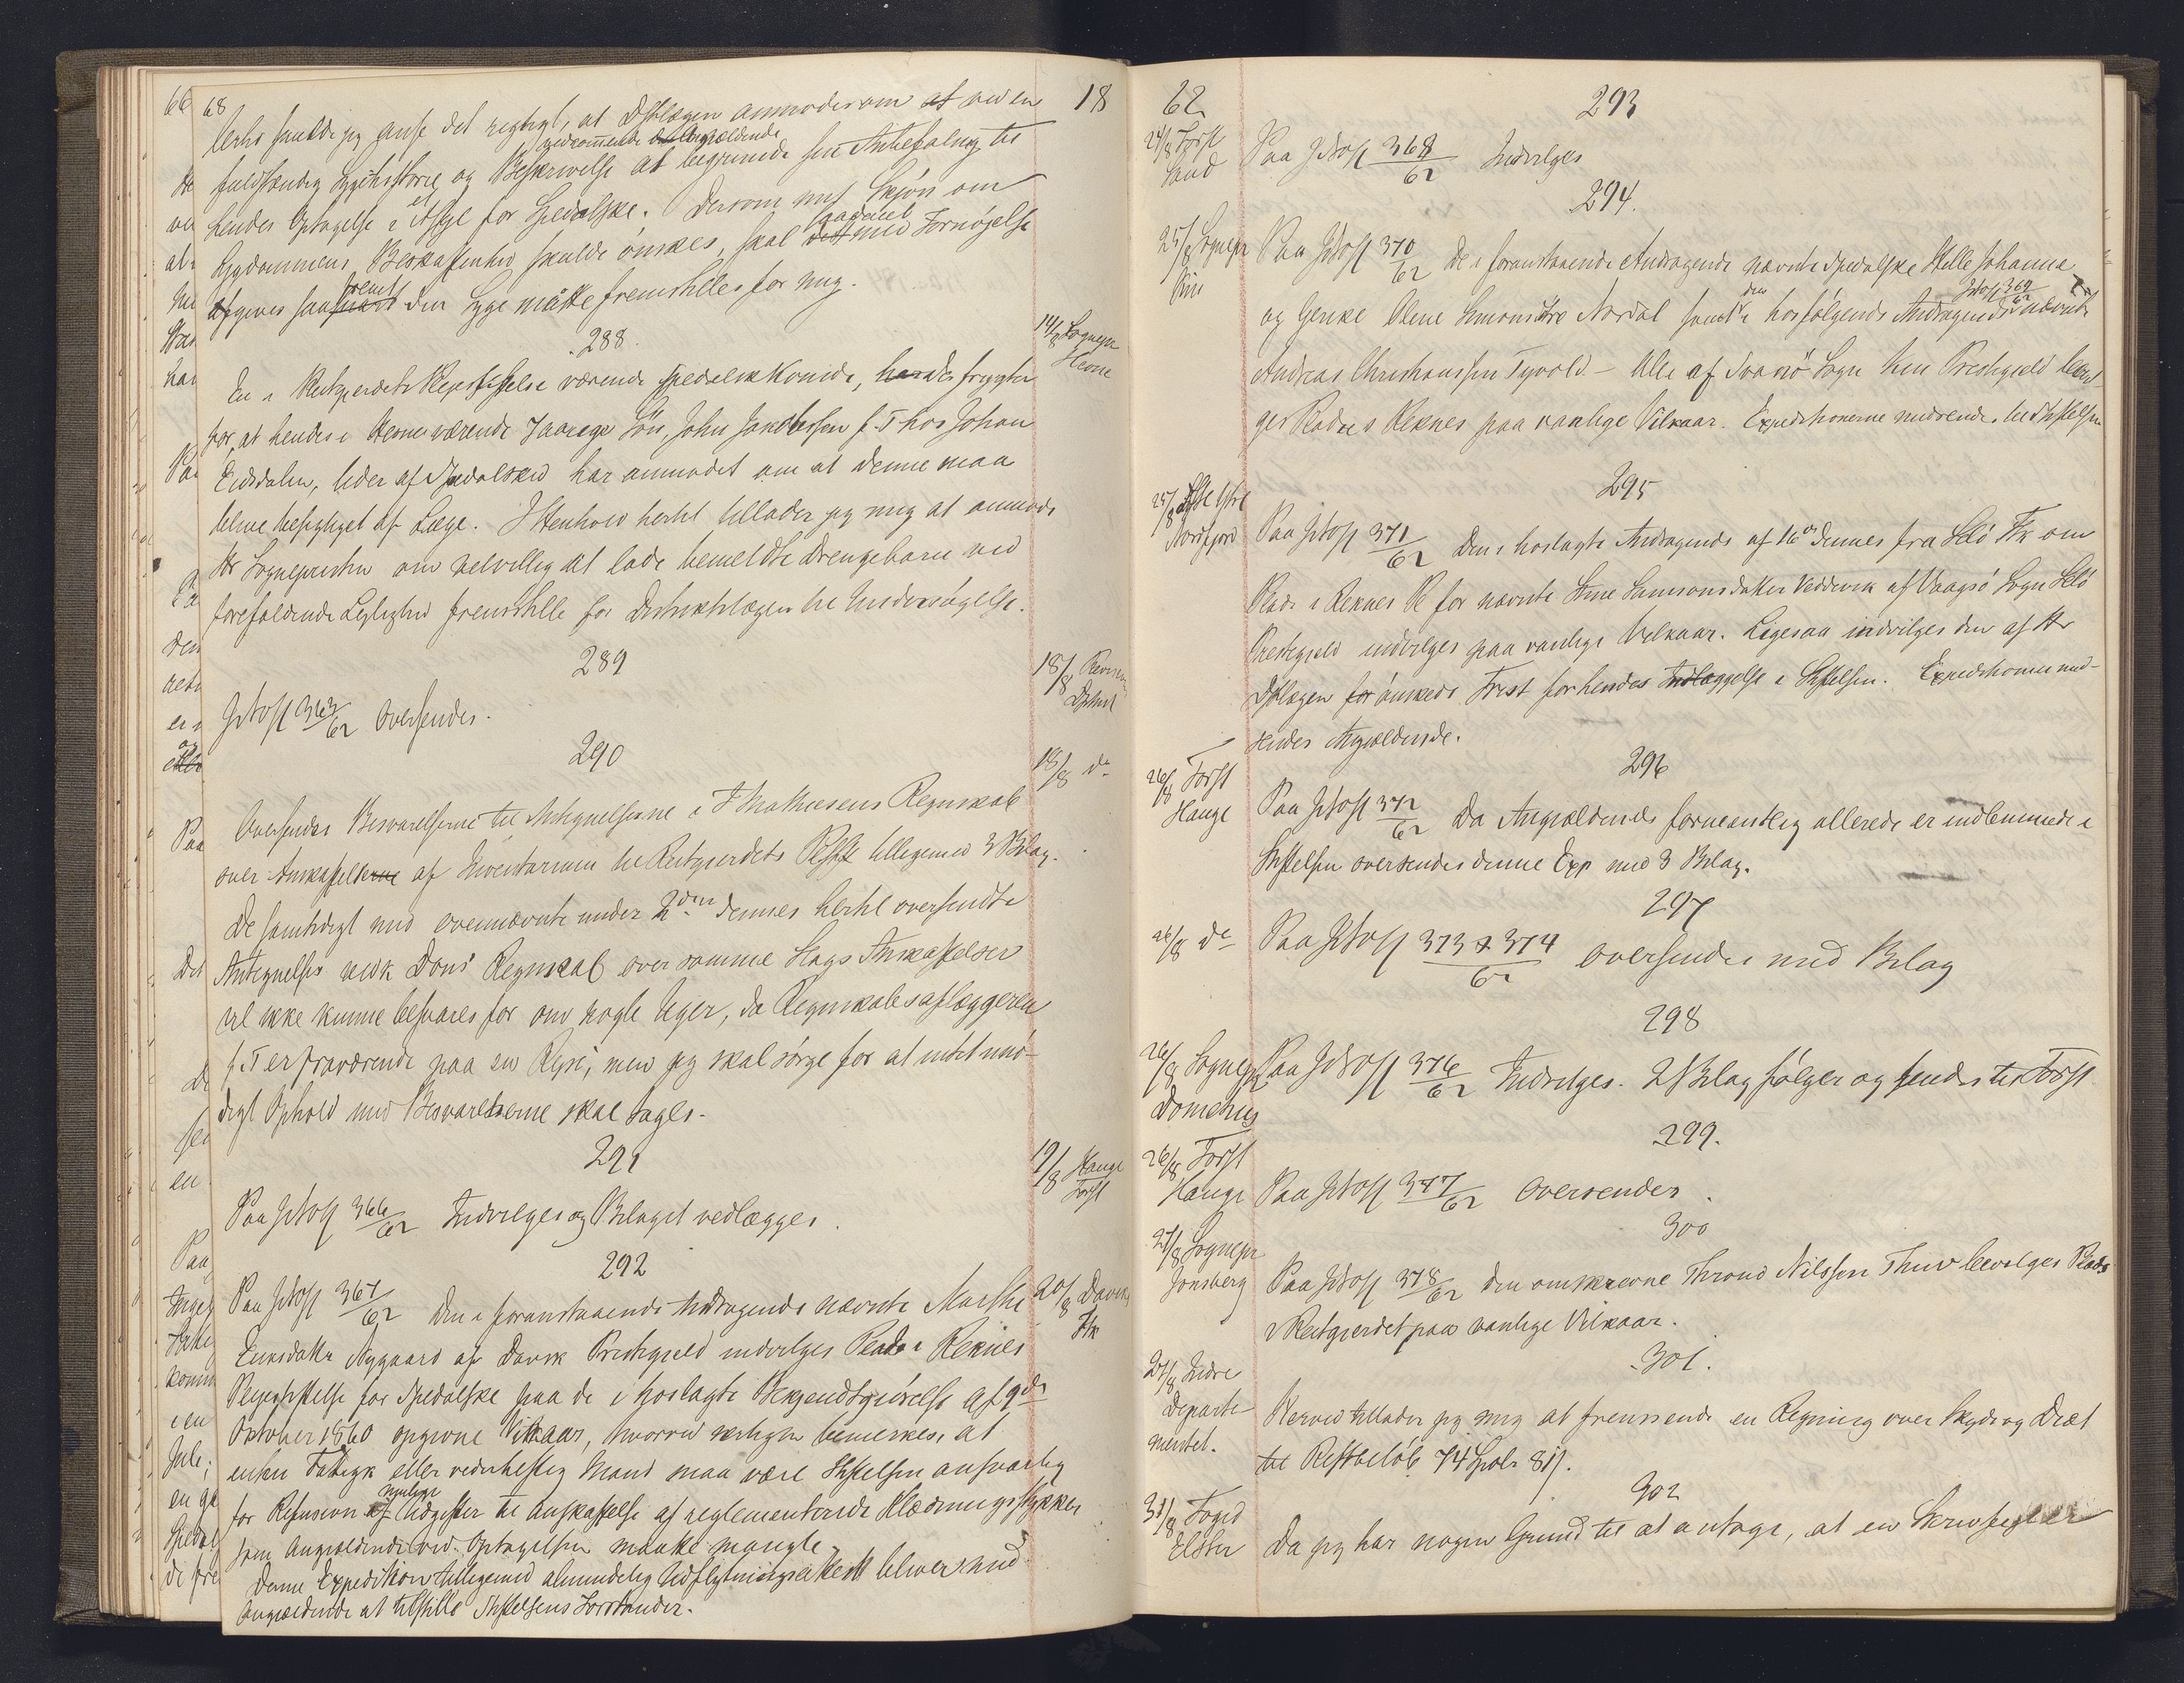 68
18
hertil skulde jeg anse det rigtigt, at Dstlægen anmodes om at ved en
vedkommende Angjældende
fuldstændig Sygehistorie og Beskrivelse at begrunde sin Anbefaling til
hendes Optagelse i et Asyl for Spedalske. Dersom mit Skjøn om
Sygdommens Beskaffenhed skulde ønskes, skal saadant med Fornøjelse
afgives saafremt den Syge maatte fremstilles for mig.
288.
14/8 Sognepr
Hevne
En i Reitgjerdets Plejestiftelse værende spedalsk Kvinde, der frygter
for, at hendes i Hevne værende 7 aarige Søn, John Jakobssen p. T hos Johan
Eidsdalen, lider af Spedalskhed har anmodet om at denne maa
blive besigtiget af Læge. I Henhold hertil tillader jeg mig at anmode
Hr Sognepresten om velvilligst at lade bemeldte Drengebarn ved
forefaldende Leilighed fremstille for Distriktslægen til Undersøgelse.
289
18/8 Revisions
Dptmt
JNo 363/62 Oversendes.
290
18/8 do
Oversendes Besvarelserne til Antegnelserne i T Mathiesens Regnskab
over Anskaffelserne af Inventarium til Reitgjerdets Plstft tilligemed 3 Bilag.
De samtidigt med ovennævnte under 2den dennes hertil oversendte
Antegnelser vedk Dons' Regnskab over samme Slags Anskaffelser
vil ikke kunne besvares før om nogle Uger, da Regnskabsaflæggeren
p. T er fraværende paa en Rejse, men jeg skal sørge for at intet unø-
digt Ophold med Besvarelserne skal tages.
291
19/8 Hauge
Forst
Paa JNo 366/62 Indvilges og Bilaget vedlægges.
292
20/8 Davik
Fk
Paa JNo 367/62 Den i foranstaaende Andragende nævnte Marthe
Eriksdatter Nygaard af Davik Prestegjeld indvilges Plads i Reknes
Plejestiftelse for Spedalske paa de i hoslagte Bekjendtgjørelse af 9de
Oktober 1860 opgivne Vilkaar, hvorved særligen bemerkes, at
enten Fattigk eller vederheftig Mand maa være Stiftelsen ansvarlig
for Refusion af mulige Udgifter til Anskaffelse af reglementerede Klædningsstykker
som Angjældende ved Optagelsen maatte mangle.
Denne Expedition tilligemed almindelig Udflytningsattest bliver med
Angjældende at tilstille Stiftelsens Forstander.
62
293
24/8 Forst
Sand
Paa JNo 368/62 Indvilges
294.
25/8 Sognepr
Kin
Paa JNo 370/62 De i foranstaaende Andragende nævnte Spedalske Helle Johanne
og Genke Olene Simonsdtre Nordal samt den i hosfølgende Andragende JNo 369/62 nævnte
Andreas Christianssen Tyvold – Alle af Svanø Sogn Kin Prestegjeld bevil-
ges Plads i Reknes paa vanlige Vilkaar. Expeditionerne medsendes ved Indstiftelsen
295
25/8 Ytre
Nordfjord
Paa JNo 371/62 Den i hoslagte Andragende af 16de dennes fra Selø Fk om
Plads i Reknes Pl for nævnte Stine Samsonsdatter Vedvik af Vaagsø Sogn Selø
Prestegjeld indvilges paa vanlige Vilkaar. Ligesaa indvilges den af Hr
Dstlægen for ønskede Frist for hendes Indlæggelse i Stiftelsen. Expeditionen med-
sendes Angjældende.
296
26/8 Forst
Hauge
Paa JNo 372/62 Da Angjældende formentlig allerede er indkommet i
Stiftelsen oversendes denne Exp med 3 Bilag.
297
26/8 do
Paa JNo 373 & 374/62 oversendes med Bilag
298
26/8 Sognepr
Domenus
Paa JNo 376/62 Indvilges. 2 Bilag følger og sendes til Forst
299.
26/8 Forst
Hauge
Paa JNo 377/62 Oversendes.
300
27/8 Sognepr
Jonsberg
Paa JNo 378/62 Den omskrevne Thrond Nilssen Thuv bevilges Plads
i Reitgjerdet paa vanlige Vilkaar.
301.
27/8 Indre
Departe
mentet.
Herved tillader jeg mig at fremsende en Regning over Skyds og Diæt
til Restbeløb 74 Spdlr 8 ß.
302
31/8 Foged
Elster
Da jeg har nogen Grund til at antage, at en